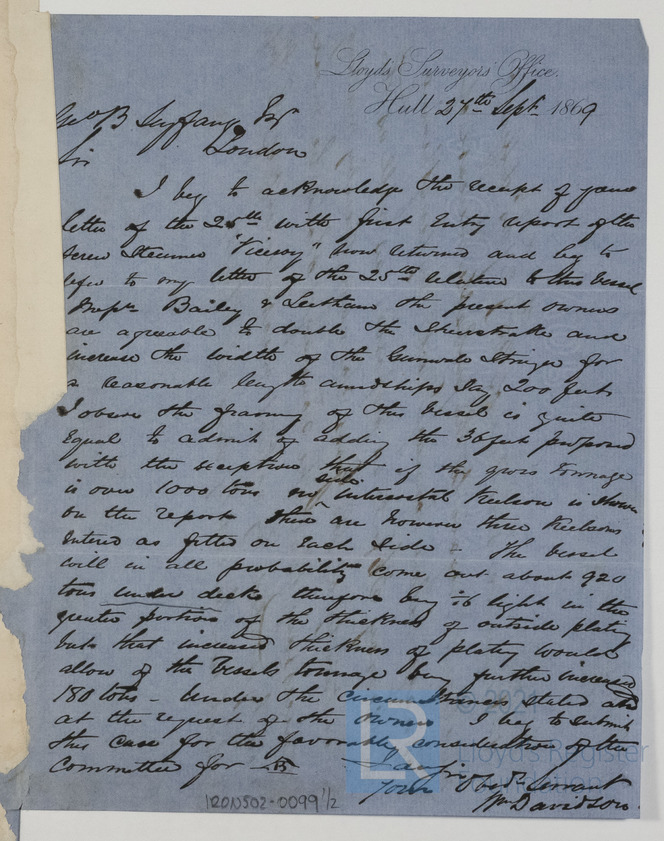 Lloyds Surveyors' Office.
Hull 27th Sept 1869
Geo B Seyfang Esq
London
Sir
I beg to acknowledge the receipt of your
letter of the 25th with first Entry report of the
Screw Steamer "Viceroy" now returned and beg to
refer to my letter of the 25th relative to this vessel
Messrs Bailey & Leetham the present owners
are agreeable to double the Sheerstrake and
increase the width of the Gunwale Stringer for
a reasonable length amidships say 200 feet
I observe the framing of this vessel is quite
Equal to admit of adding the 36 feet proposed
with the exception that if the gross tonnage
is over 1000 tons no side intercostal Keelson is shown
on the report there are however three Keelsons
entered as fitted on each side - The vessel
will in all probability come out about 920
tons under deck therefore being 1/16 light in the
greater portion of the thickness of outside plating
but that increased thickness of plating would
allow of the vessels tonnage being further increased
180 tons - Under the circumstances stated and
at the request of the owners I beg to submit
this case for the favorable consideration of the
Committee for B
I am Sir
Your Obedt Servant
Wm Davidson
IRON502-0099 1/2
LR
© 202
Lloyd's Register
Foundation